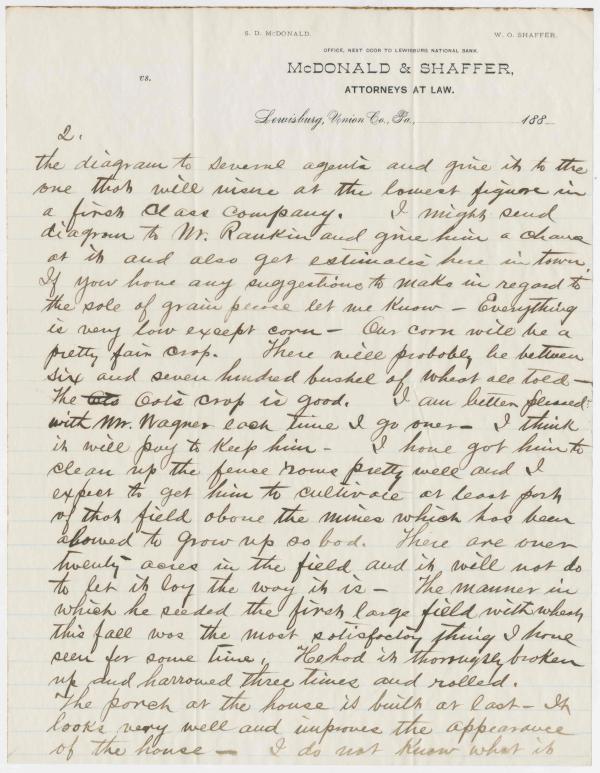 S. D. McDONALD.
W. O. SHAFFER.
OFFICE, NEXT DOOR TO LEWISBURG NATIONAL BANK.
McDONALD & SHAFFER,
ATTORNEYS AT LAW.
vs.
Lewisburg, Union Co., Pa., 188
2.
the diagram to several agents and give it to the
one that will insure at the lowest figure in
a first class company. I might send
diagram to Mr. Rankin and give him a chance
at it and also get estimates here in town.
If you have any suggestions to make in regard to
the sale of grain please let me know – Everything
is very low except corn – Our corn will be a
pretty fair crop. There will probably be between
six and seven hundred bushel of wheat all told –
The Oats crop is good. I am better pleased
with Mr. Wagner each time I go over – I think
it will pay to keep him – I have got him to
clean up the fence rows pretty well and I
expect to get him to cultivate at least part
of that field above the mines which has been
allowed to grow up so bad. There are over
twenty acres in the field and it will not do
to let it lay the way it is – The manner in
which he seeded the first large field with wheat
this fall was the most satisfactory thing I have
seen for some time. He had it thoroughly broken
up and harrowed three times and rolled.
The porch at the house is built at last – It
looks very well and improves the appearance
of the house – I do not know what it